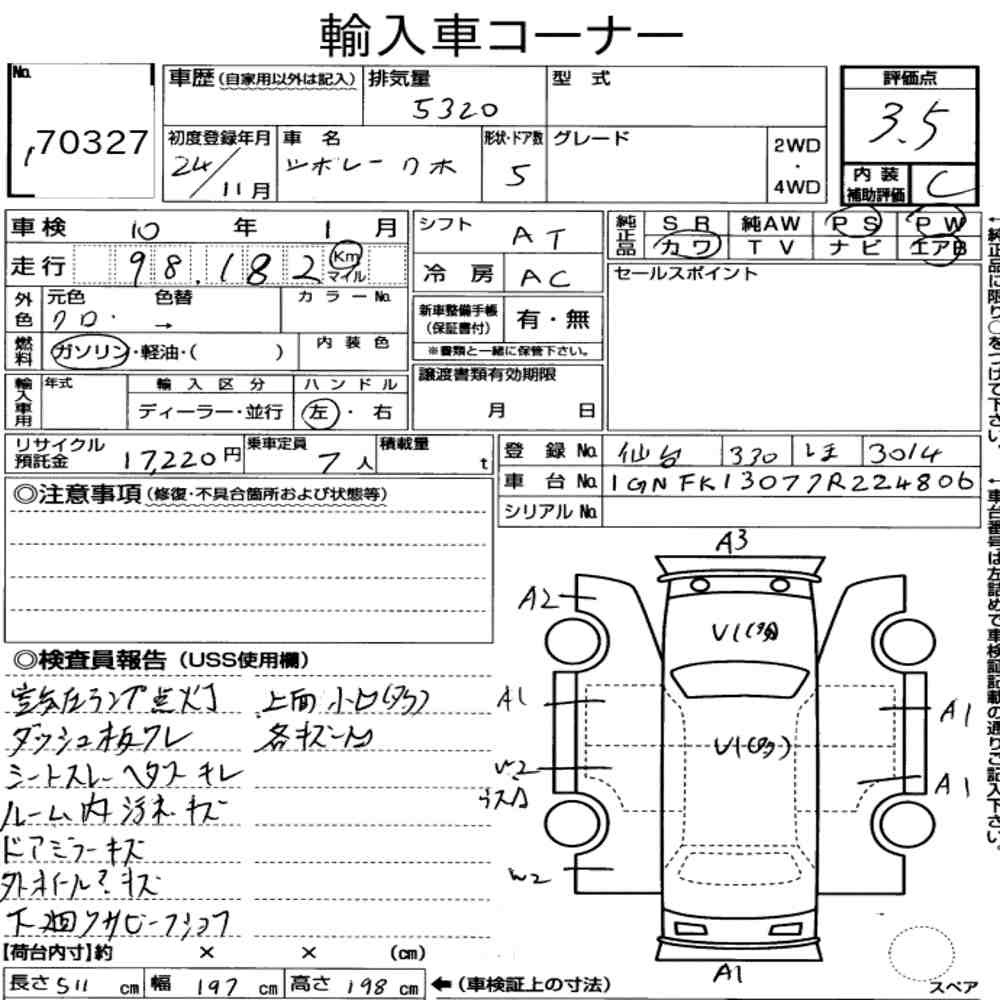 輸入車コーナー
No. 70327
車歴 (自家用以外は記入)
排気量 5320
型式
評価点 3.5
初度登録年月 24/11月
車名 シボレー タホ
形状・ドア数 5
グレード
2WD・4WD
内装補助評価 C
車検 10年 1月
走行 98,182 Km マイル
シフト AT
冷房 AC
純正品 SR 純AW PS PW
カワ TV ナビ エアB
セールスポイント
外色 元色 クロ 色替 →
カラーNo.
新車整備手帳(保証書付) 有・無
※書類と一緒に保管下さい。
燃料 ガソリン・軽油・( )
内装色
輸入車用 年式
輸入区分 ディーラー・並行
ハンドル 左・右
譲渡書類有効期限
月 日
リサイクル預託金 17,220円
乗車定員 7人
積載量 t
登録No. 仙台 330 3014
車台No. 1GNFK13077R224806
シリアルNo.
◎注意事項(修復・不具合箇所および状態等)
◎検査員報告(USS使用欄)
空気圧ランプ点灯
上面小凹(多)
ダッシュ板ワレ
各キズ凹
シートスレ ヘタス キレ
ルーム内 汚れ キズ
ドアミラーキズ
外ホイール キズ
下廻りサビ
A3
A2
V1(多)
A1
V1(多)
A1
A1
W2
A1
【荷台内寸】約 × × (cm)
長さ 511 cm 幅 197 cm 高さ 198 cm
←(車検証上の寸法)
スペア
←純正品に限り○をつけて下さい。
←車台番号は左詰めで車検証記載の通りご記入下さい。